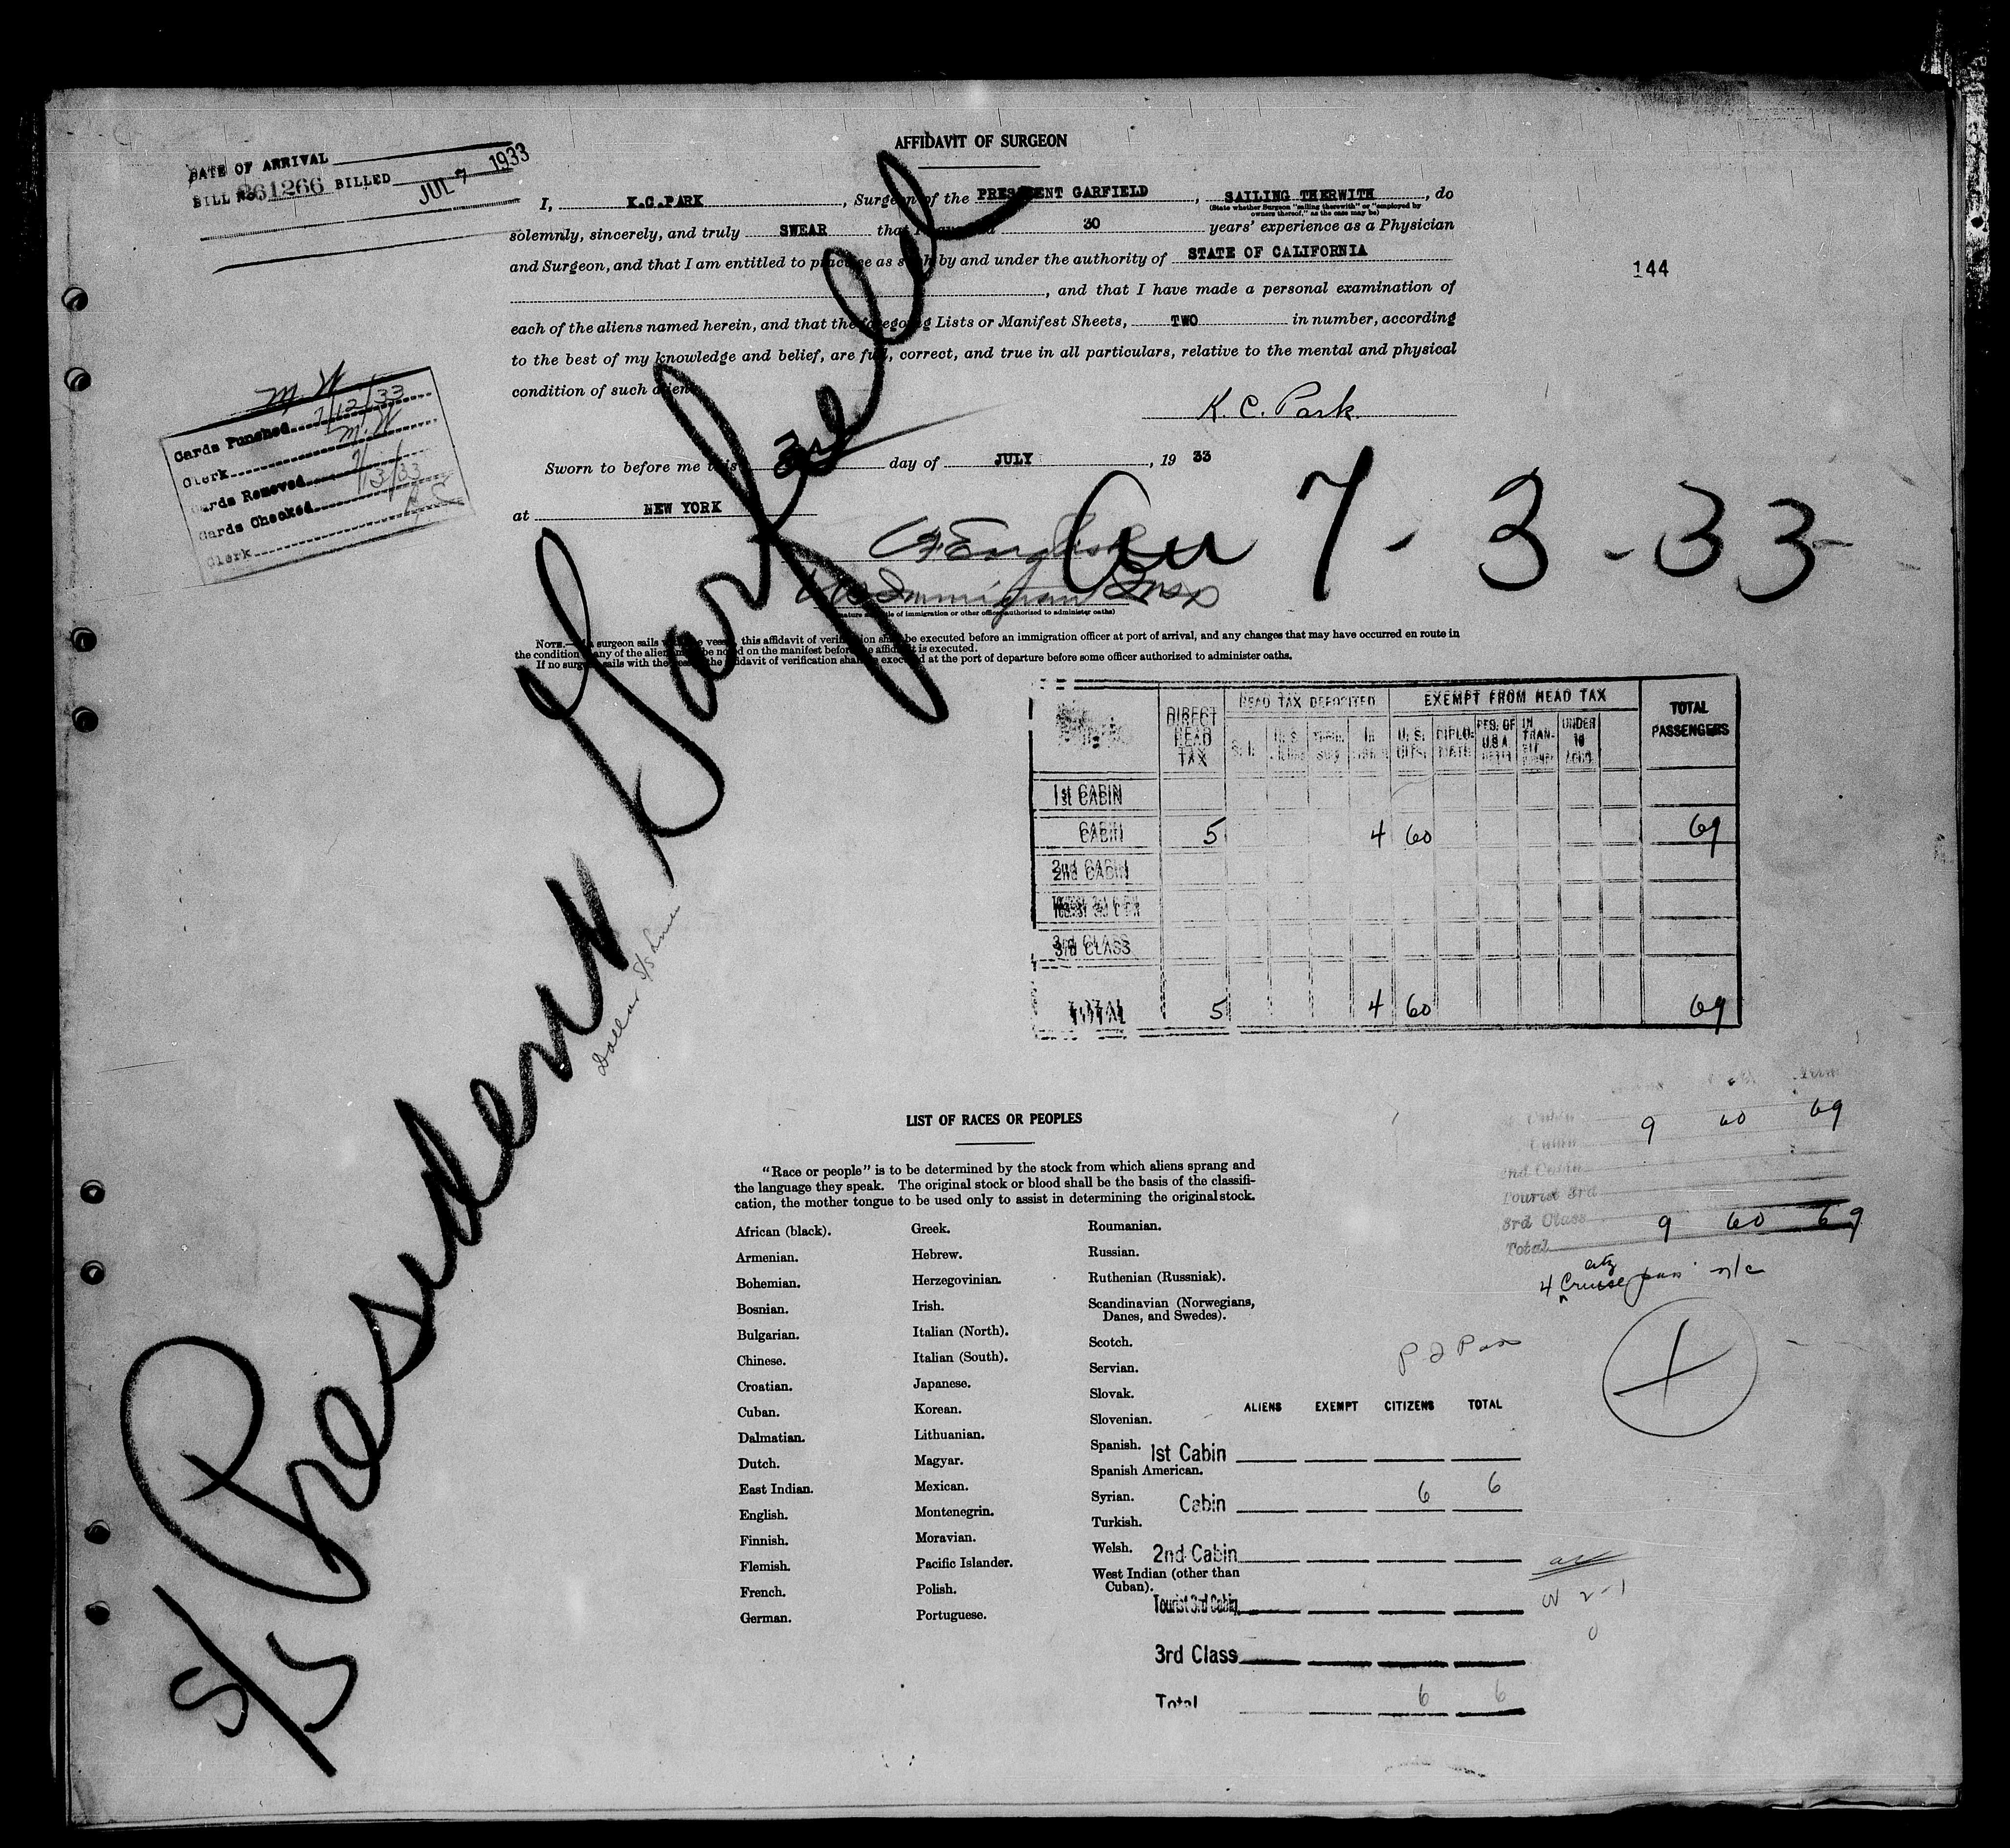 AFFIDAVIT OF SURGEON
DATE OF ARRIVAL
BILL No. 361266 BILLED JUL 7 1933
I, K.C.PARK, Surgeon of the PRESIDENT GARFIELD, SAILING THERWITH, do
(State whether Surgeon "sailing therewith" or "employed by
owners thereof," as the case may be)
solemnly, sincerely, and truly SWEAR that I have had 30 years' experience as a Physician
and Surgeon, and that I am entitled to practice as such by and under the authority of STATE OF CALIFORNIA
144
, and that I have made a personal examination of
each of the aliens named herein, and that the foregoing Lists or Manifest Sheets, TWO in number, according
to the best of my knowledge and belief, are full, correct, and true in all particulars, relative to the mental and physical
condition of such aliens.
K. C. Park
M W
Cards Punched 7/12/33
Clerk M.W
Cards Removed
Cards Checked 7/13/33
Clerk
Sworn to before me this 3rd day of JULY, 19 33
at NEW YORK
Arr 7-3-33
English
US Immigrant Insp
(Signature and title of immigration or other officer authorized to administer oaths)
NOTE.—If a surgeon sails with the vessel, this affidavit of verification shall be executed before an immigration officer at port of arrival, and any changes that may have occurred en route in
the condition of any of the aliens must be noted on the manifest before the affidavit is executed.
If no surgeon sails with the vessel, the affidavit of verification shall be executed at the port of departure before some officer authorized to administer oaths.
S/S President Garfield
Dollar S/S Line
DIRECT HEAD TAX
HEAD TAX DEPOSITED
EXEMPT FROM HEAD TAX
TOTAL PASSENGERS
S. I.
U. S. CITS.
DIPLO-MATS
RES. OF U.S.A.
IN TRAN-SIT
UNDER 16
1st CABIN
CABIN 5 4 60 69
2nd CABIN
3rd CLASS
TOTAL 5 4 60 69
Cabin 9 60 69
2nd Cabin
Tourist 3rd
3rd Class
Total 9 60 69
4 Cruise
LIST OF RACES OR PEOPLES
"Race or people" is to be determined by the stock from which aliens sprang and
the language they speak. The original stock or blood shall be the basis of the classifi-
cation, the mother tongue to be used only to assist in determining the original stock.
African (black).
Armenian.
Bohemian.
Bosnian.
Bulgarian.
Chinese.
Croatian.
Cuban.
Dalmatian.
Dutch.
East Indian.
English.
Finnish.
Flemish.
French.
German.
Greek.
Hebrew.
Herzegovinian.
Irish.
Italian (North).
Italian (South).
Japanese.
Korean.
Lithuanian.
Magyar.
Mexican.
Montenegrin.
Moravian.
Pacific Islander.
Polish.
Portuguese.
Roumanian.
Russian.
Ruthenian (Russniak).
Scandinavian (Norwegians,
Danes, and Swedes).
Scotch.
Servian.
Slovak.
Slovenian.
Spanish.
Spanish American.
Syrian.
Turkish.
Welsh.
West Indian (other than
Cuban).
ALIENS EXEMPT CITIZENS TOTAL
1st Cabin
Cabin 6 6
2nd Cabin
Tourist 3rd Cabin
3rd Class
Total 6 6